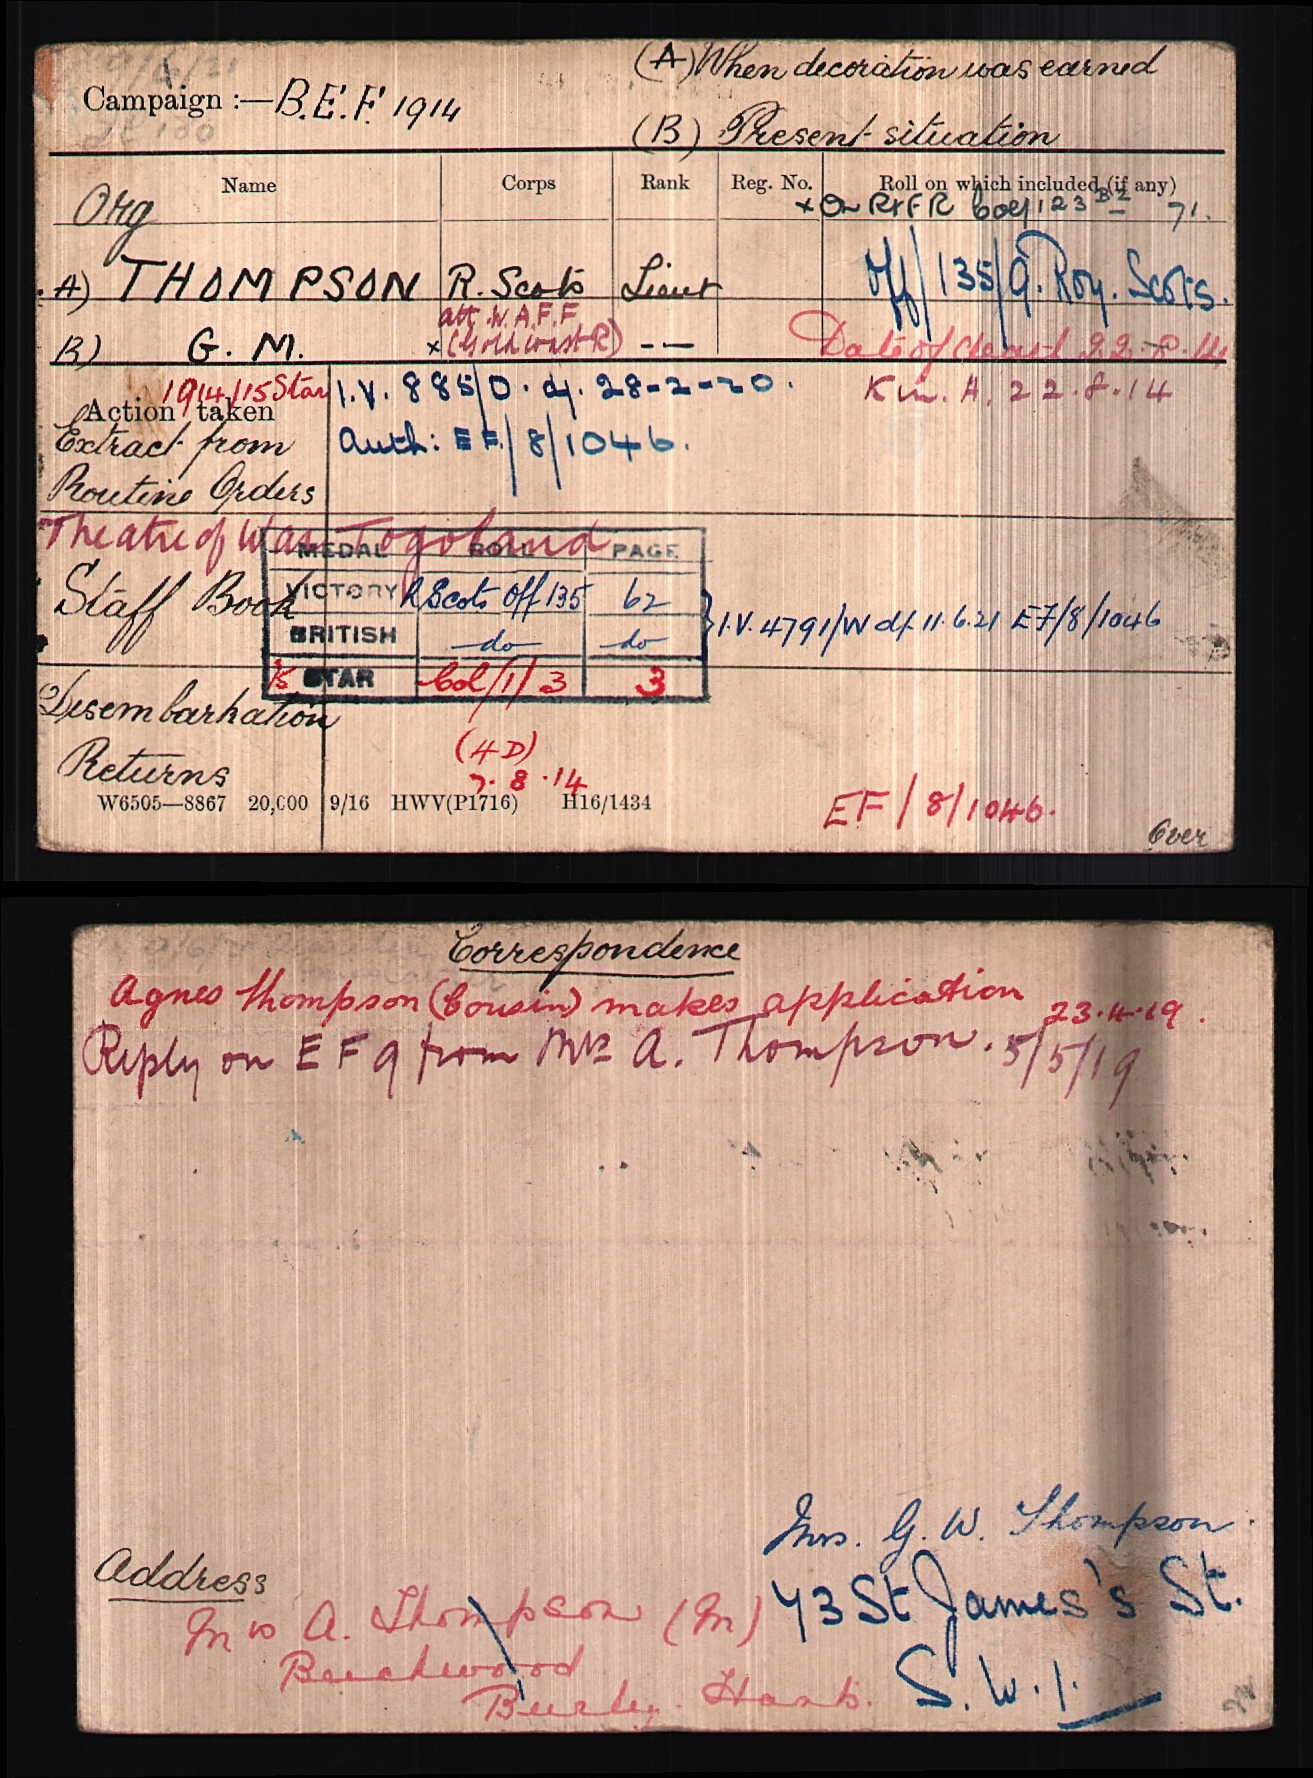 (A) When decoration was earned
Campaign :— B.E.F. 1914
(B) Present situation
Name Corps Rank Reg. No. Roll on which included (if any)
Org × On R & F R Col 1 123 B2 71.
A) THOMPSON R. Scots Lieut Off/135/9. Roy. Scots.
att W.A.F.F
B) G. M. × (Gold Coast R) — — Date of death 22.8.14
1914/15 Star I.V. 885/0. d/. 28-2-20. K in A. 22.8.14
Action taken
Extract from Auth: EF/8/1046.
Routine Orders
Theatre of War Togoland
MEDAL ROLL PAGE
Staff Book VICTORY R Scots Off 135 62
I.V. 4791/W d/. 11.6.21 EF/8/1046
BRITISH do do
15 STAR Col/1/3 3
Disembarkation
(4D)
Returns 7.8.14
W6505—8867 20,000 9/16 HWV(P1716) H16/1434
EF/8/1046.
Over
Correspondence
Agnes Thompson (Cousin) makes application 23.4.19.
Reply on EF 9 from Mrs A. Thompson. 5/5/19
Mrs. G. W. Thompson.
Address
Mrs A. Thompson (M) 43 St James's St.
Beechwood S.W.1.
Burley. Hants.